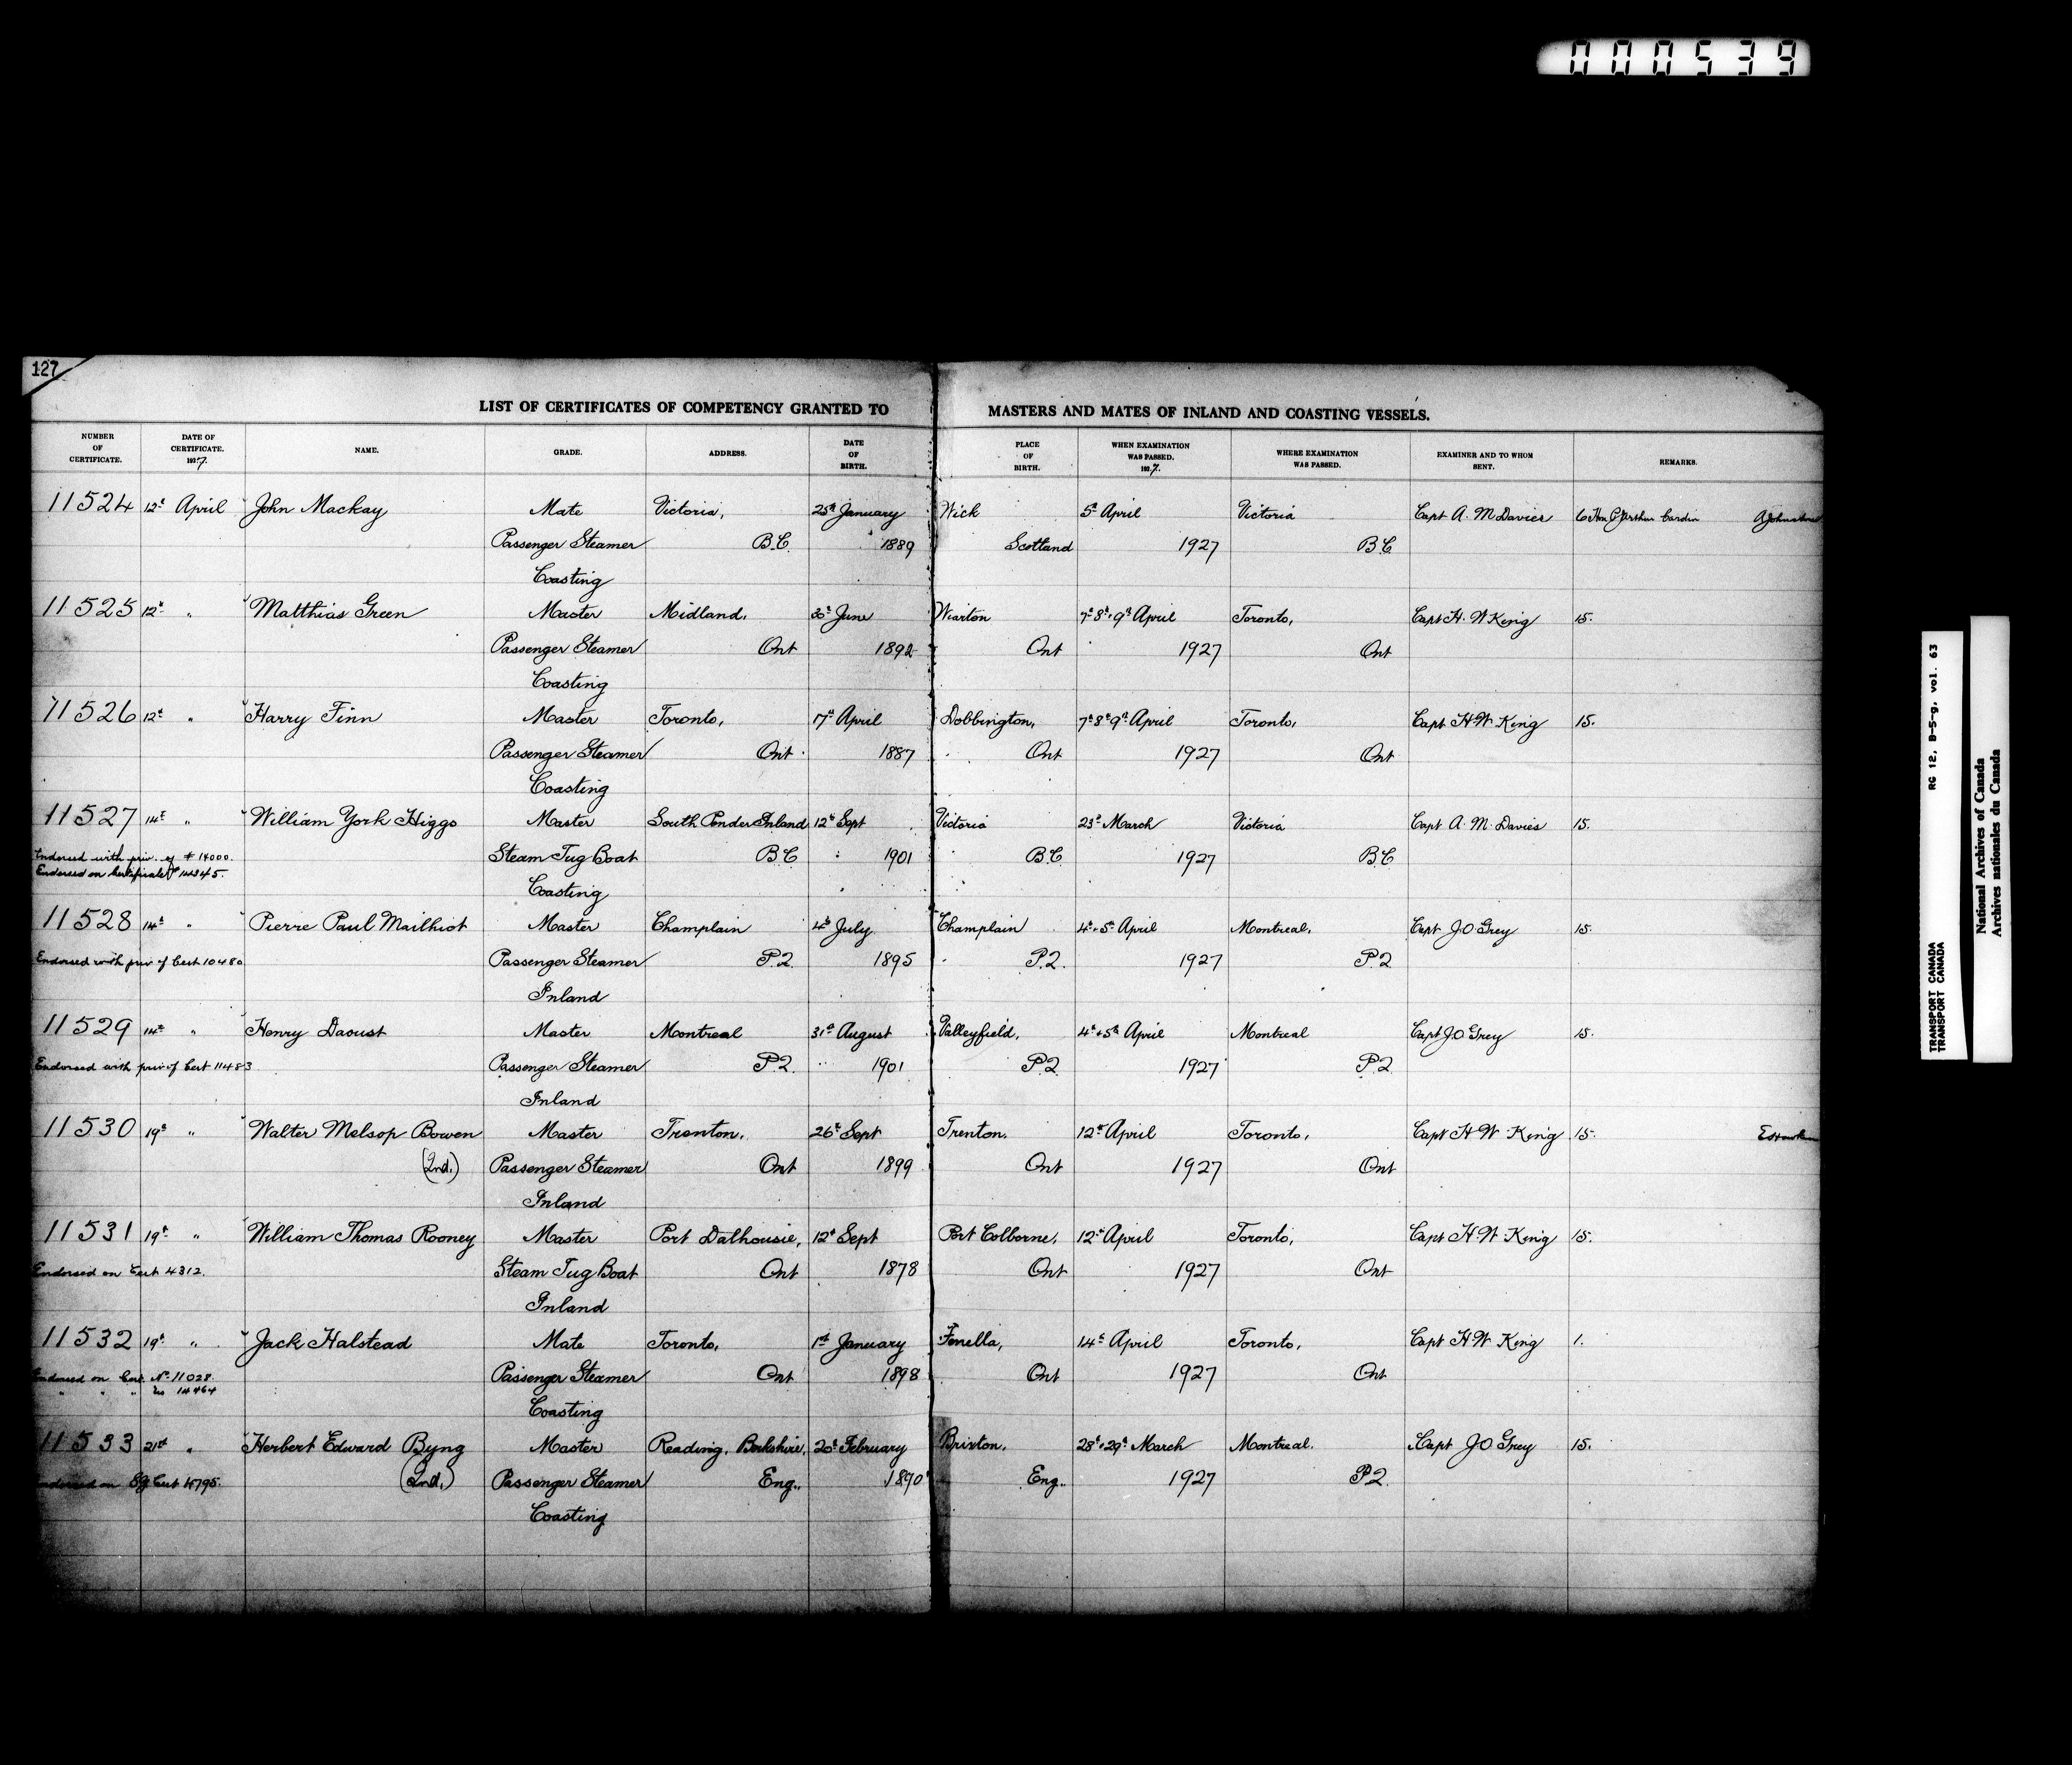 000539
127
LIST OF CERTIFICATES OF COMPETENCY GRANTED TO MASTERS AND MATES OF INLAND AND COASTING VESSELS.
NUMBER OF CERTIFICATE. DATE OF CERTIFICATE. 1927. NAME. GRADE. ADDRESS. DATE OF BIRTH. PLACE OF BIRTH. WHEN EXAMINATION WAS PASSED. 1927. WHERE EXAMINATION WAS PASSED. EXAMINER AND TO WHOM SENT. REMARKS.
11524 12th April John Mackay Mate Victoria, 25th January Wick 5th April Victoria Capt A. M Davies 6 Hon P Arthur Cardin A Johnston
Passenger Steamer B.C. 1889 Scotland 1927 B.C
Coasting
11525 12th " Matthias Green Master Midland, 30th June Wiarton 7th 8th & 9th April Toronto, Capt H. W King 15.
Passenger Steamer Ont 1892 Ont 1927 Ont
Coasting
11526 12th " Harry Finn Master Toronto, 17th April Dobbington, 7th 8th 9th April Toronto, Capt H. W King 15.
Passenger Steamer Ont 1887 Ont 1927 Ont
Coasting
11527 14th " William York Higgs Master South Pender Island 12th Sept Victoria 23rd March Victoria Capt A. M. Davies 15.
Endorsed with priv. of # 14000. Steam Tug Boat B.C 1901 B.C. 1927 B.C
Endorsed on Certificate # 14345. Coasting
11528 14th " Pierre Paul Mailhiot Master Champlain 4th July Champlain 4th & 5th April Montreal, Capt J.O Grey 15.
Endorsed with priv of Cert 10480 Passenger Steamer P.Q. 1895 P.Q. 1927 P.Q
Inland
11529 14th " Henry Daoust Master Montreal 31st August Valleyfield, 4th & 5th April Montreal Capt J.O Grey 15.
Endorsed with priv of Cert 11483 Passenger Steamer P.Q. 1901 P.Q. 1927 P.Q
Inland
11530 19th " Walter Melsop Bowen Master Trenton, 26th Sept Trenton. 12th April Toronto, Capt H. W. King 15.
(2nd.) Passenger Steamer Ont 1899 Ont 1927 Ont
Inland
11531 19th " William Thomas Rooney Master Port Dalhousie, 12th Sept Port Colborne, 12th April Toronto, Capt H. W. King 15.
Endorsed on Cert 4312. Steam Tug Boat Ont 1878 Ont 1927 Ont
Inland
11532 19th " Jack Halstead Mate Toronto, 1st January Fenella, 14th April Toronto, Capt H. W. King 1.
Endorsed on Cert. No 11028. Passenger Steamer Ont 1898 Ont 1927 Ont
" " " No 14464 Coasting
11533 21st " Herbert Edward Byng Master Reading, Berkshire, 20th February Brixton, 28th & 29th March Montreal. Capt J.O Grey 15.
Endorsed on Cert (2nd.) Passenger Steamer Eng., 1890 Eng.. 1927 P.Q.
Coasting
RG 12, B-5-g, vol. 63
TRANSPORT CANADA
TRANSPORT CANADA
National Archives of Canada
Archives nationales du Canada